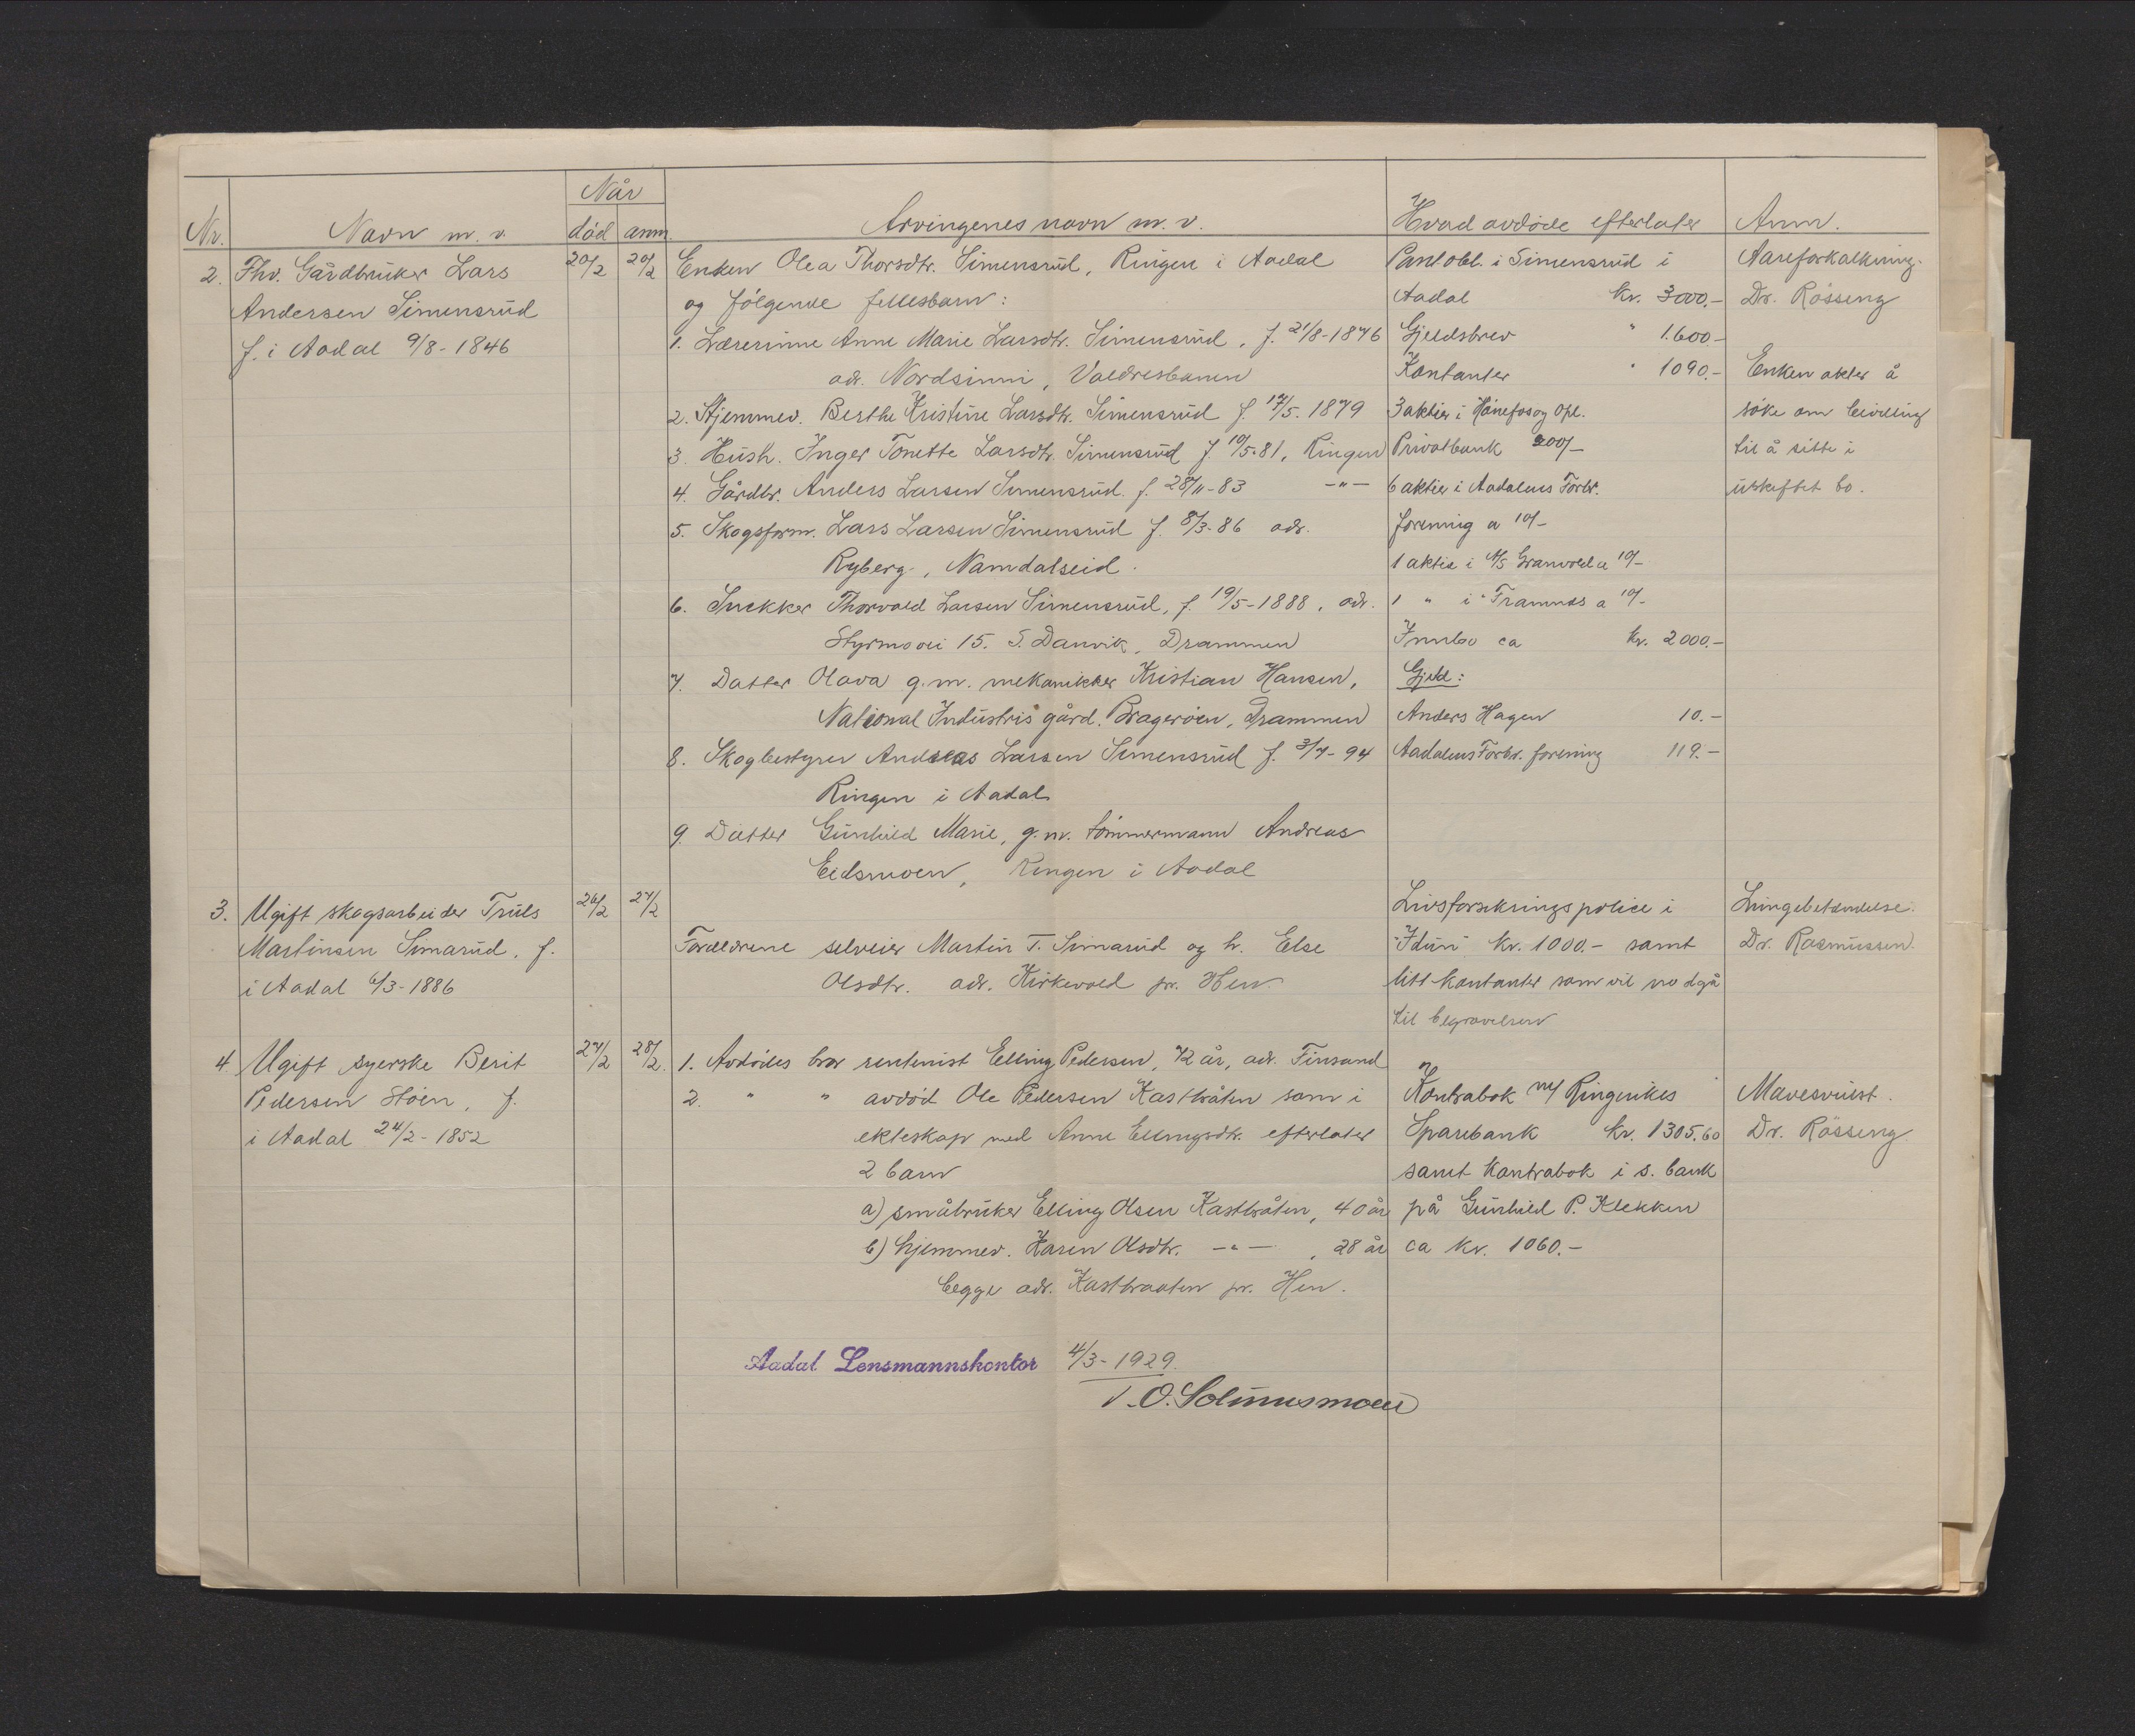 Når
Nr. Navn m. v. död anm. Arvingenes navn m. v. Hvad avdöde efterlater Anm.
2. Fhv. Gårdbruker Lars 20/2 20/2 Enken Olea Thorsdtr. Simensrud, Ringen i Aadal Pantobl. i Simensrud i Aareforkalkning.
Andersen Simensrud og fölgende fellesbarn: Aadal kr. 3000.- Dr. Rösseng
f. i Aadal 9/8-1846 1. Lærerinne Anne Marie Larsdtr. Simensrud, f. 21/8-1876 Gjeldsbrev " 1600.-
adr. Nordsinni, Valdresbanen Kontanter " 1090.- Enken akter å
2. Hjemmev. Berthe Kristine Larsdtr. Simensrud f. 17/5. 1879 3 aktier i Hönefos og Opl. söke om bevilling
3. Hush. Inger Tonette Larsdtr. Simensrud f. 10/5-81, Ringen Privatbank 200/- til å sitte i
4. Gårdbr. Anders Larsen Simensrud. f. 28/11-83 -"- 6 aktier i Aadalens Forbr. uskiftet bo.
5. Skogsform. Lars Larsen Simensrud f. 8/3-86 adr. forening a 10/-
Ryberg, Namdalseid. 1 aktie i A/S Granvold a 10/-
6. Snekker Thorvald Larsen Simensrud, f. 19/5-1888, adr. 1 " i "Framnes a 10/-
Styrmovei 15. S. Danvik, Drammen Innbo ca kr. 2000.-
7. Datter Olava g.m. mekanikker Kristian Hansen, Gjeld:
National Industris gård. Brageröen, Drammen Anders Hagen 10.-
8. Skogbestyrer Andreas Larsen Simensrud f. 3/7-94 Aadalens Forbr. forening 119.-
Ringen i Aadal
9. Datter Gunhild Marie, g.m. tömmermann Andreas
Eidsmoen, Ringen i Aadal
3. Ugift skogsarbeider Truls 26/2 27/2 Livsforsikringspolice i Lungebetendelse.
Martinsen Simarud, f. Foreldrene selveier Martin T. Simarud og h. Else "Idun" kr. 1000.- samt Dr. Rasmussen.
i Aadal 6/3-1886 Olsdtr. adr. Kirkevold pr. Hen litt kontanter som vil medgå
til begravelsen
4. Ugift syerske Berit 27/2 28/2. 1. Avdödes bror rentenist Elling Pedersen, 72 år, adr. Finsand
Pedersen Stöen, f. 2. " " avdöd Ole Pedersen Kastbråten som i Kontrabok m/ Ringerikes Mavesvulst.
i Aadal 24/2-1852 ekteskap med Anne Ellingsdtr. efterlater Sparebank kr. 1305.60 Dr. Rösseng
2 barn samt kontrabok i s. bank
a) småbruker Elling Olsen Kastbråten, 40 år på Gunhild P. Klekken
b) hjemmev. Karen Olsdtr. -"- , 28 år ca kr. 1060.-
begge adr. Kastbraaten pr. Hen.
Aadal Lensmannskontor 4/3-1929.